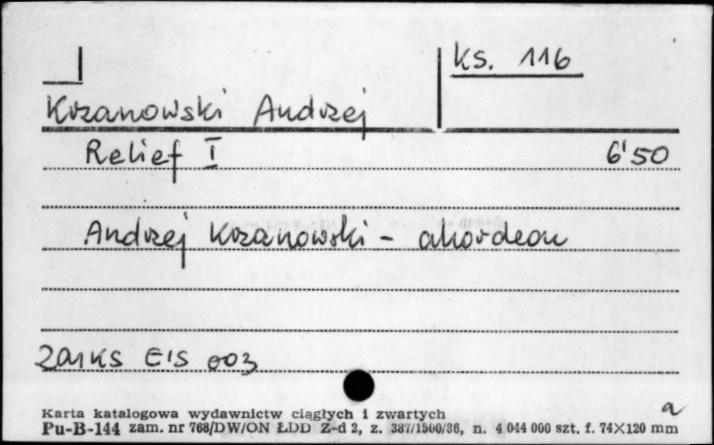 Ks. 116
Krzanowski Andrzej
Relief I 6'50
Andrzej Krzanowski - akordeon
ZAIKS E'S 003
Karta katalogowa wydawnictw ciągłych i zwartych a
Pu-B-144 zam. nr 768/DW/ON ŁDD Z-d 2, z. 387/1500/86, n. 4 044 000 szt. f. 74×120 mm